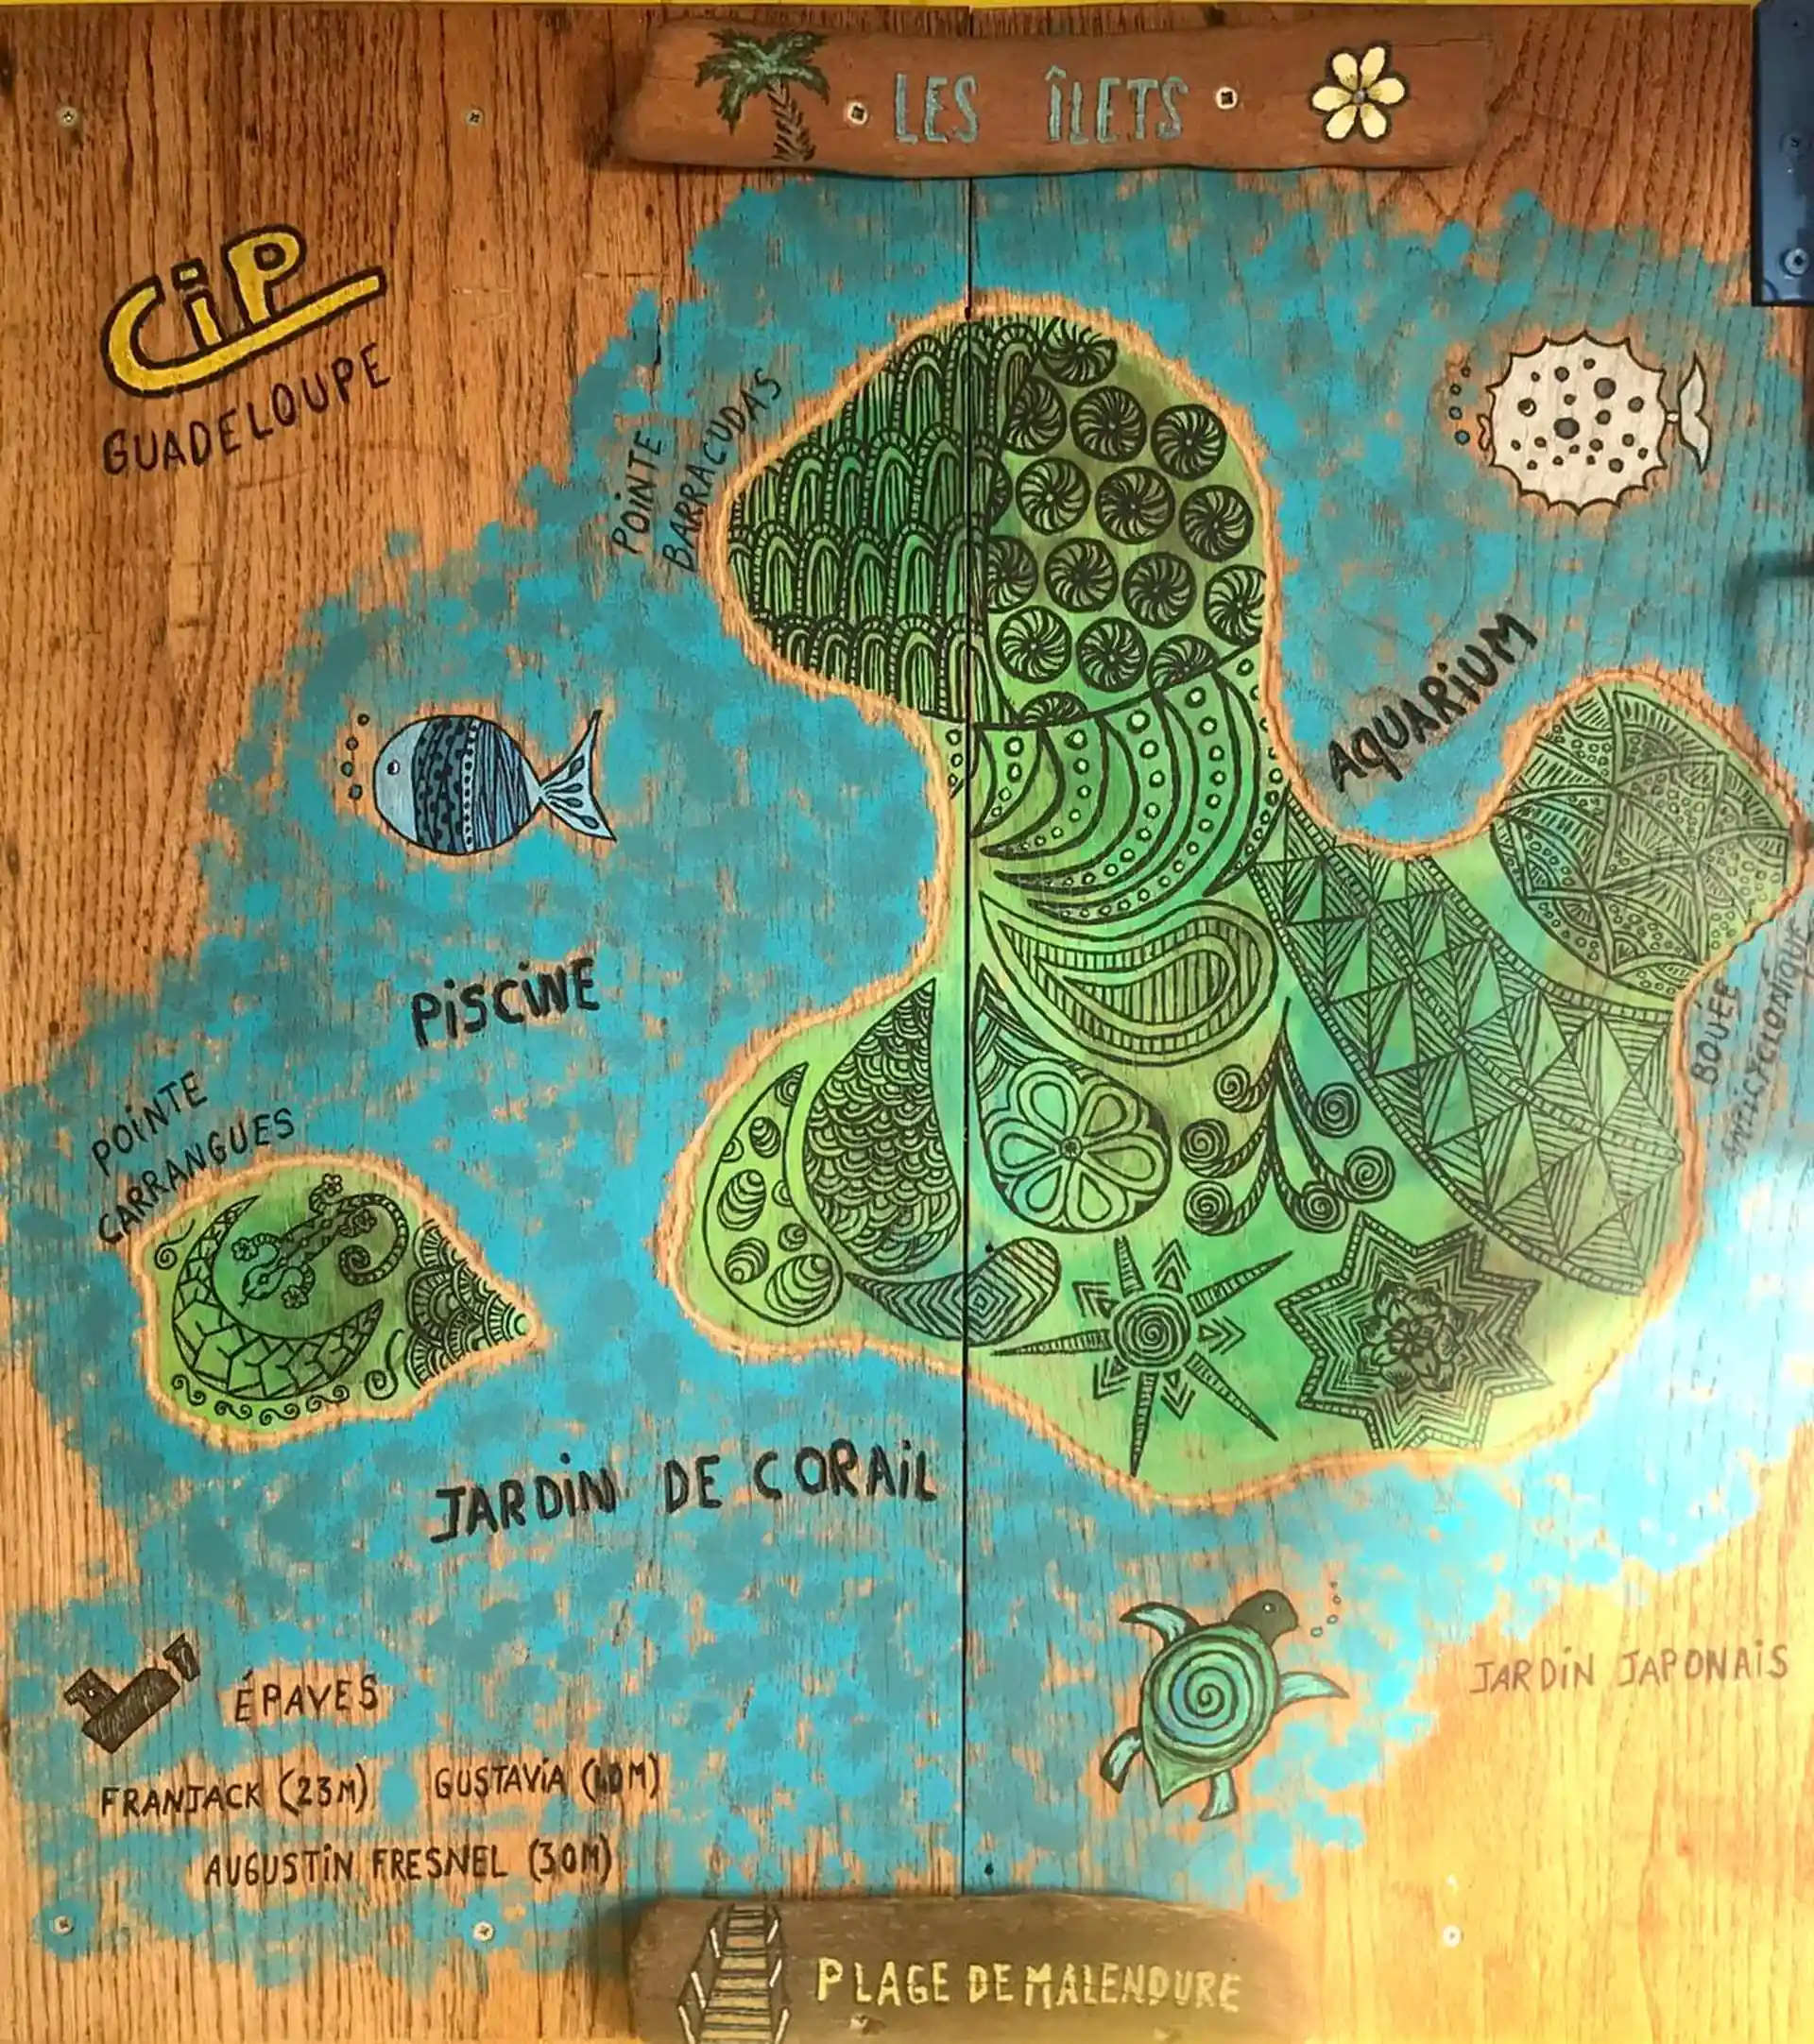 LES ÎLETS
CiP
GUADELOUPE
POiNTE
BARRACUDAS
AQUARiUM
PiSCiNE
BOUÉE
ANTiCYCLONiQUE
POiNTE
CARRANGUES
JARDiN DE CORAiL
JARDiN JAPONAiS
ÉPAVES
FRANJACK (23M) GUSTAViA (40M)
AUGUSTiN FRESNEL (30M)
PLAGE DE MALENDURE